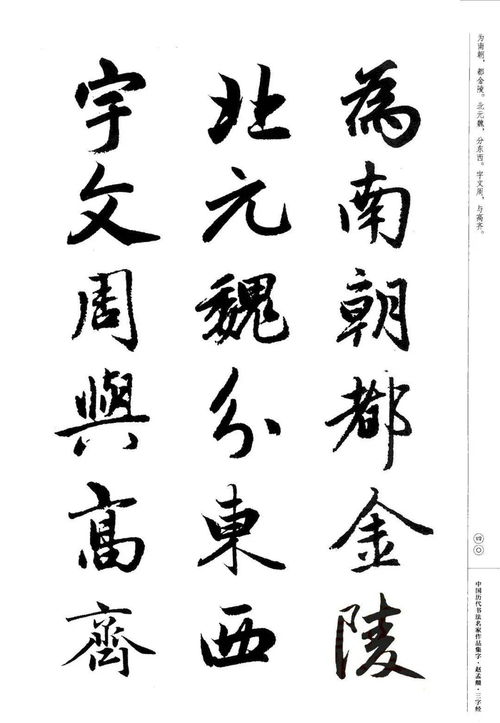 為南朝都金陵
北元魏分東西
宇文周與高齊
为南朝，都金陵。北元魏，分东西。宇文周，与高齐。
四〇
中国历代书法名家作品集字·赵孟頫·三字经